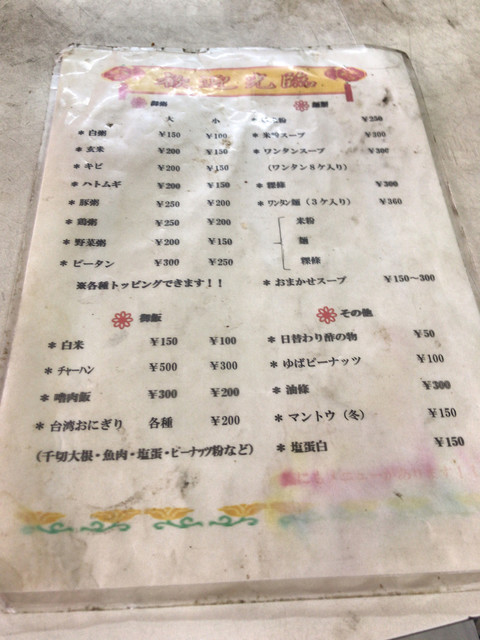 歓迎光臨
御粥
大 小
* 白粥 ¥150 ¥100
* 玄米 ¥200 ¥150
* キビ ¥200 ¥150
* ハトムギ ¥200 ¥150
* 豚粥 ¥250 ¥200
* 鶏粥 ¥250 ¥200
* 野菜粥 ¥200 ¥150
* ピータン ¥300 ¥250
※各種トッピングできます!!
麺類
粉 ¥250
* スープ ¥300
* ワンタンスープ ¥300
(ワンタン8ケ入り)
* 粿條 ¥300
* ワンタン麺(3ケ入り) ¥360
米粉
麺
粿條
* おまかせスープ ¥150〜300
御飯
* 白米 ¥150 ¥100
* チャーハン ¥500 ¥300
* 嚕肉飯 ¥300 ¥200
* 台湾おにぎり 各種 ¥200
(千切大根・魚肉・塩蛋・ピーナッツ粉など)
その他
* 日替わり酢の物 ¥50
* ゆばピーナッツ ¥100
* 油條 ¥300
* マントウ(冬) ¥150
* 塩蛋白 ¥150